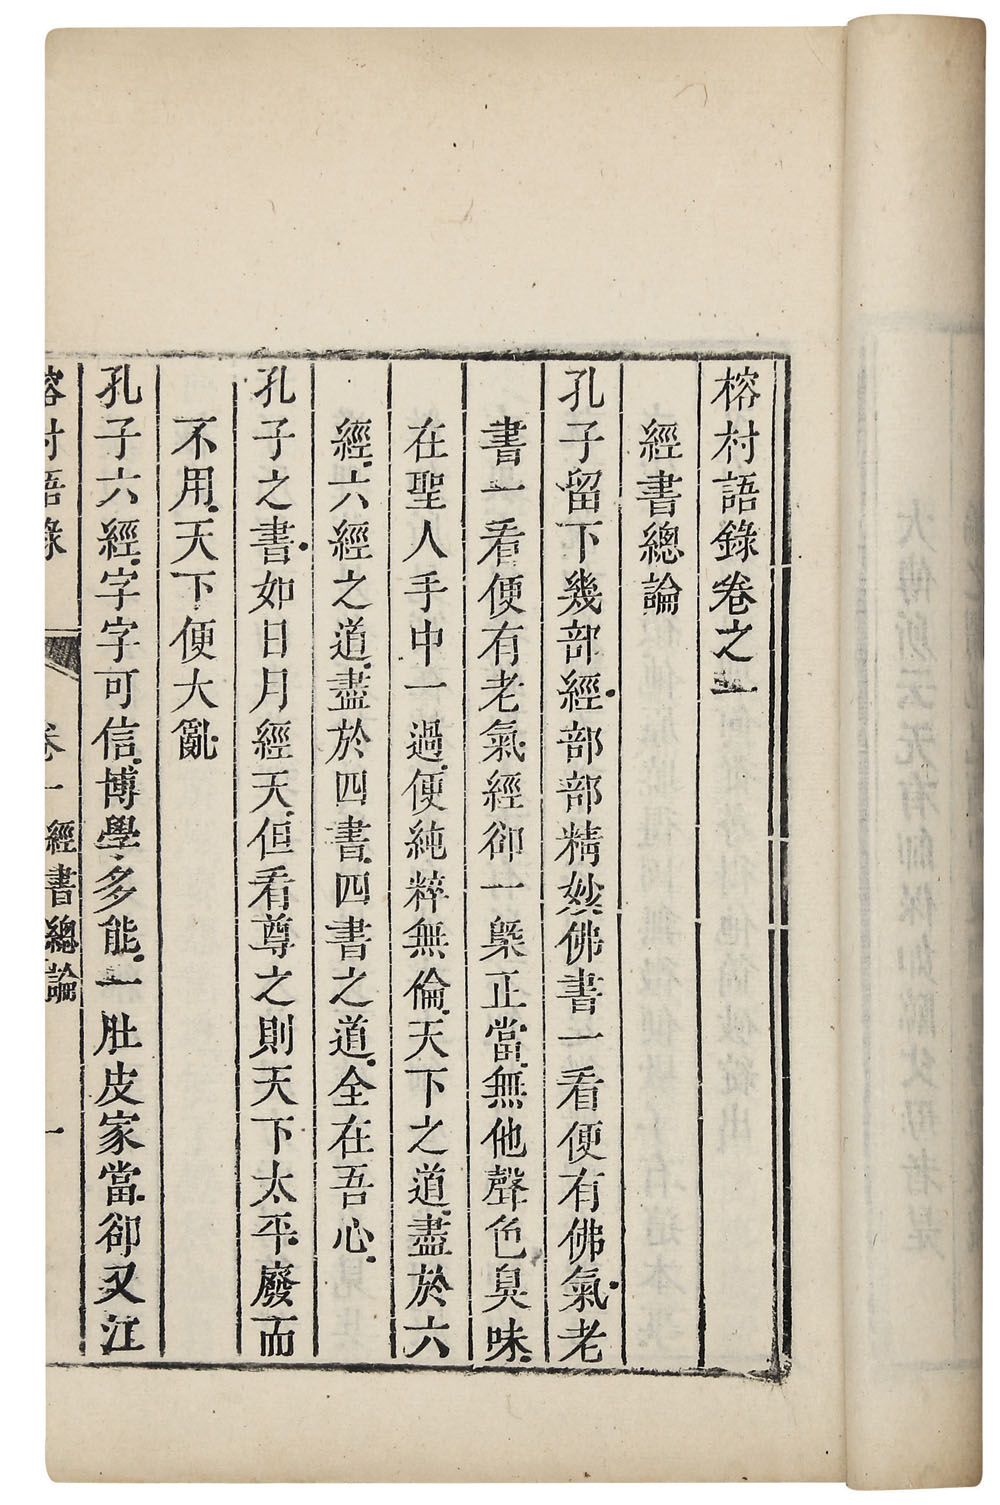 榕村語錄卷之一
經書總論
孔子留下幾部經部部精妙佛書一看便有佛氣老
書一看便有老氣經卻一槩正當無他聲色臭味
在聖人手中一過便純粹無倫天下之道盡於六
經六經之道盡於四書四書之道全在吾心
孔子之書如日月經天但看尊之則天下太平廢而
不用天下便大亂
孔子六經字字可信博學多能一肚皮家當卻又江
榕村語錄 卷一 經書總論 一